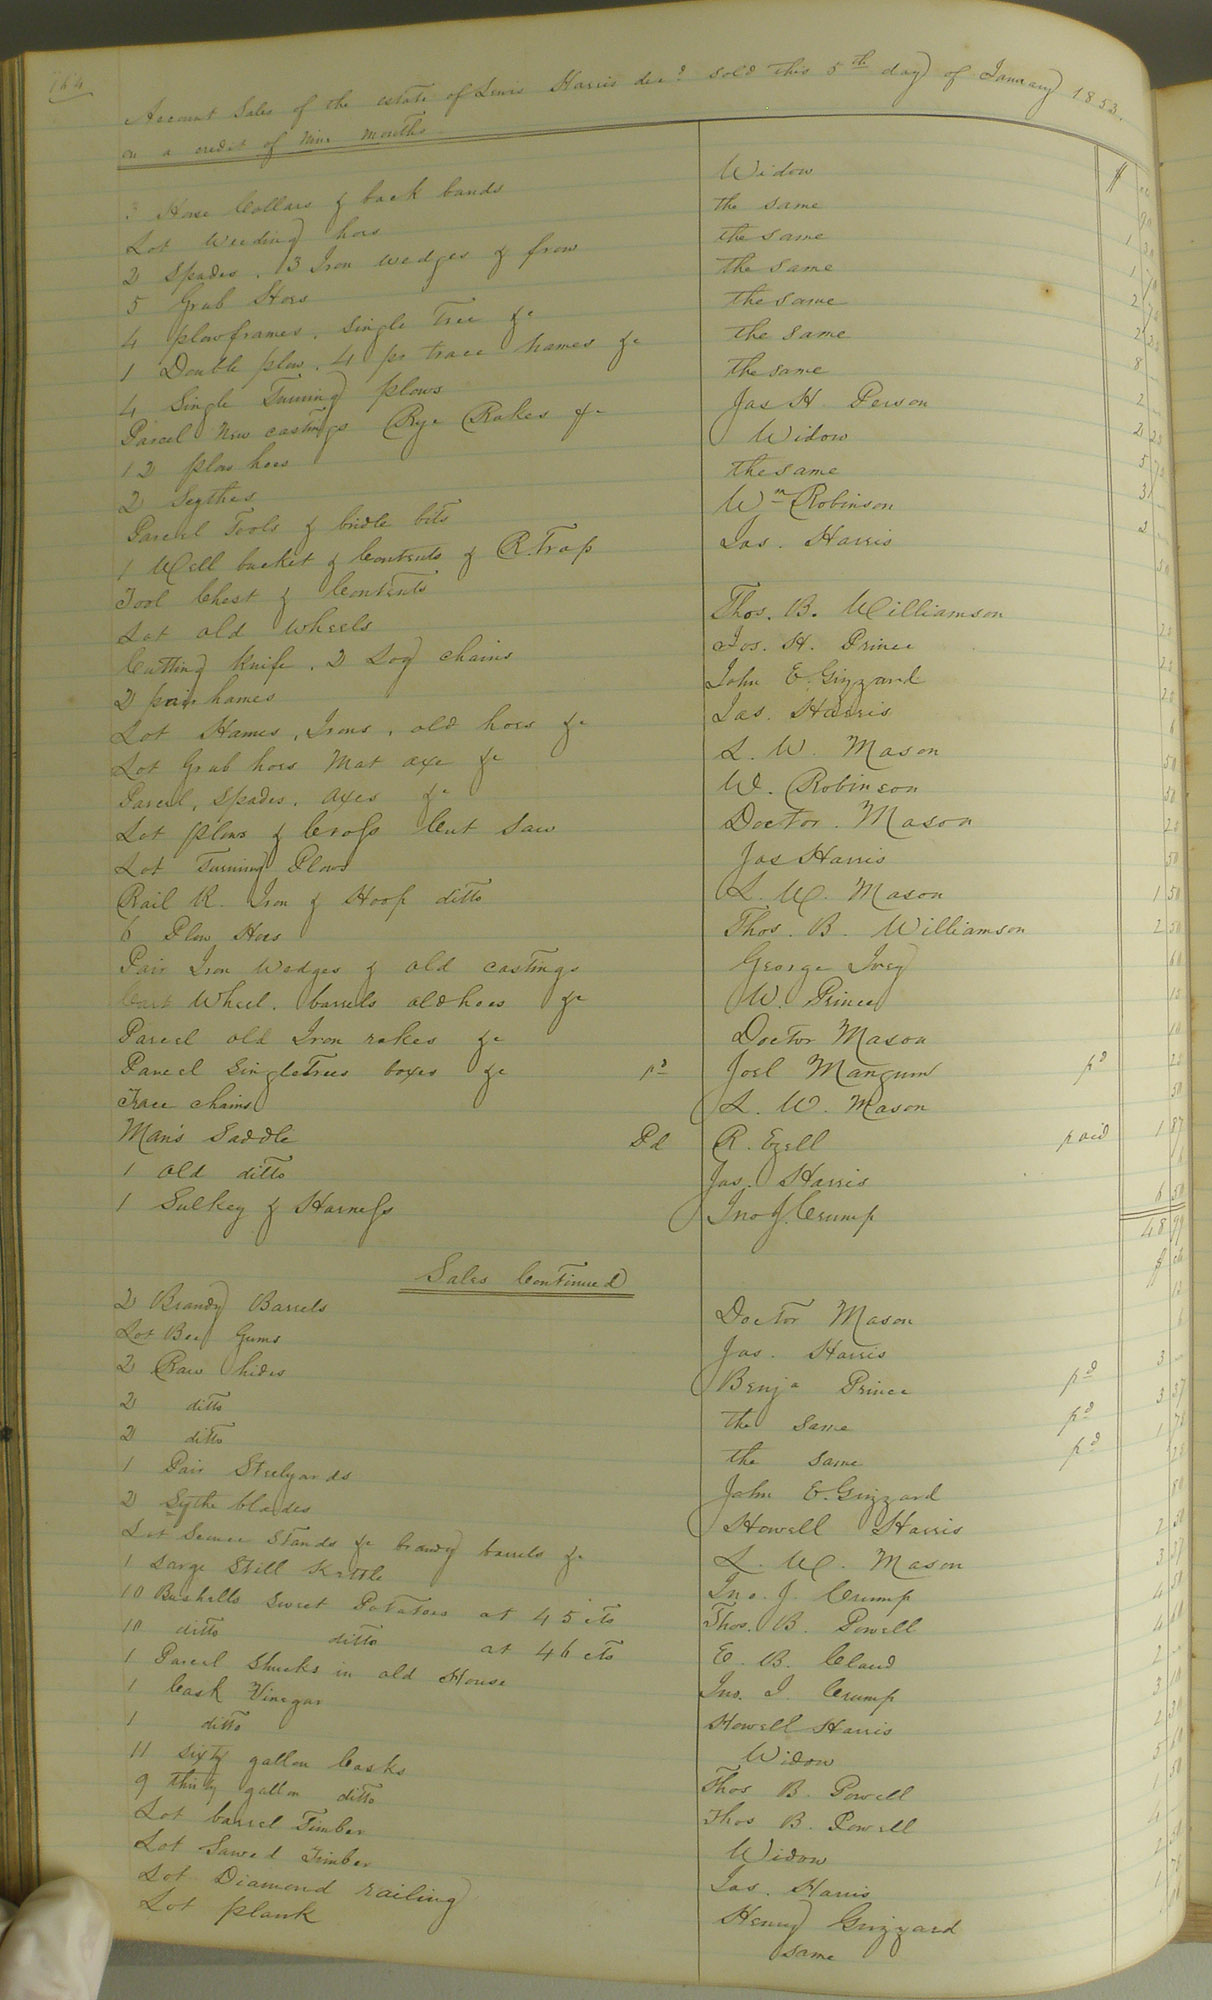 164
Account Sales of the estate of Lewis Harris decd sold this 5th day of January 1853.
on a credit of Nine months.
$
3 Horse Collars & back bands Widow
Lot Weeding hoes the same
2 Spades, 3 Iron wedges & frow the same
5 Grub Hoes the same
4 plowframes, Single Tree &c the same
1 Double plow, 4 pr trace hames &c the same
4 Single Turning plows the same
Parcel New castings Rye Rakes &c Jas H. Person
12 plow hoes Widow
2 Scythes the same
Parcel Tools & bridle bits Wm Robinson
1 Well bucket & Contents & R. Trap Jas. Harris
Tool Chest & Contents
Lot old Wheels Thos. B. Williamson
Cutting Knife, 2 Log chains Jos. H. Prince
2 pair hames John E. Grizzard
Lot Hames, Irons, old hoes &c Jas. Harris
Lot Grub hoes Mat axe &c L. W. Mason
Parcel, Spades, axes &c W. Robinson
Lot plows & Cross Cut Saw Doctor Mason
Lot Turning Plows Jas Harris
Rail R. Iron & Hoop ditto L. W. Mason 1 50
6 Plow Hoes Thos. B. Williamson 2 50
Pair Iron Wedges & old castings George Ivey
Cart Wheel, barrels old hoes &c W. Prince
Parcel old Iron rakes &c Doctor Mason
Parcel Singletrees boxes &c pd Joel Mangum pd
Trace chains L. W. Mason 50
Man's Saddle Pd R. Ezell paid 1 87
1 old ditto Jas. Harris
1 Sulkey & Harness Jno J. Crump 6 50
48 99
Sales Continued
$ cts
2 Brandy Barrels Doctor Mason
Lot Bee Gums Jas. Harris
2 Raw hides Benja Prince pd 3
2 ditto the same pd 3 37
2 ditto the same pd 1
1 Pair Steelyards John E. Grizzard
2 Sythe blades Howell Harris
Lot Stands &c brandy barrels &c L. W. Mason
1 Large Still Kettle Jno. J. Crump
10 Bushells Sweet Potatoes at 45 cts Thos. B. Powell
10 ditto ditto at 46 cts E. B. Claud
1 Parcel Shucks in old House Jno. J. Crump
1 Cask Vinegar Howell Harris
1 ditto Widow
11 Sixty gallon Casks Thos B. Powell
9 thirty gallon ditto Thos B. Powell
Lot barrel Timber Widow
Lot Sawed Timber Jas. Harris
Lot Diamond railing Henry Grizzard
Lot plank same